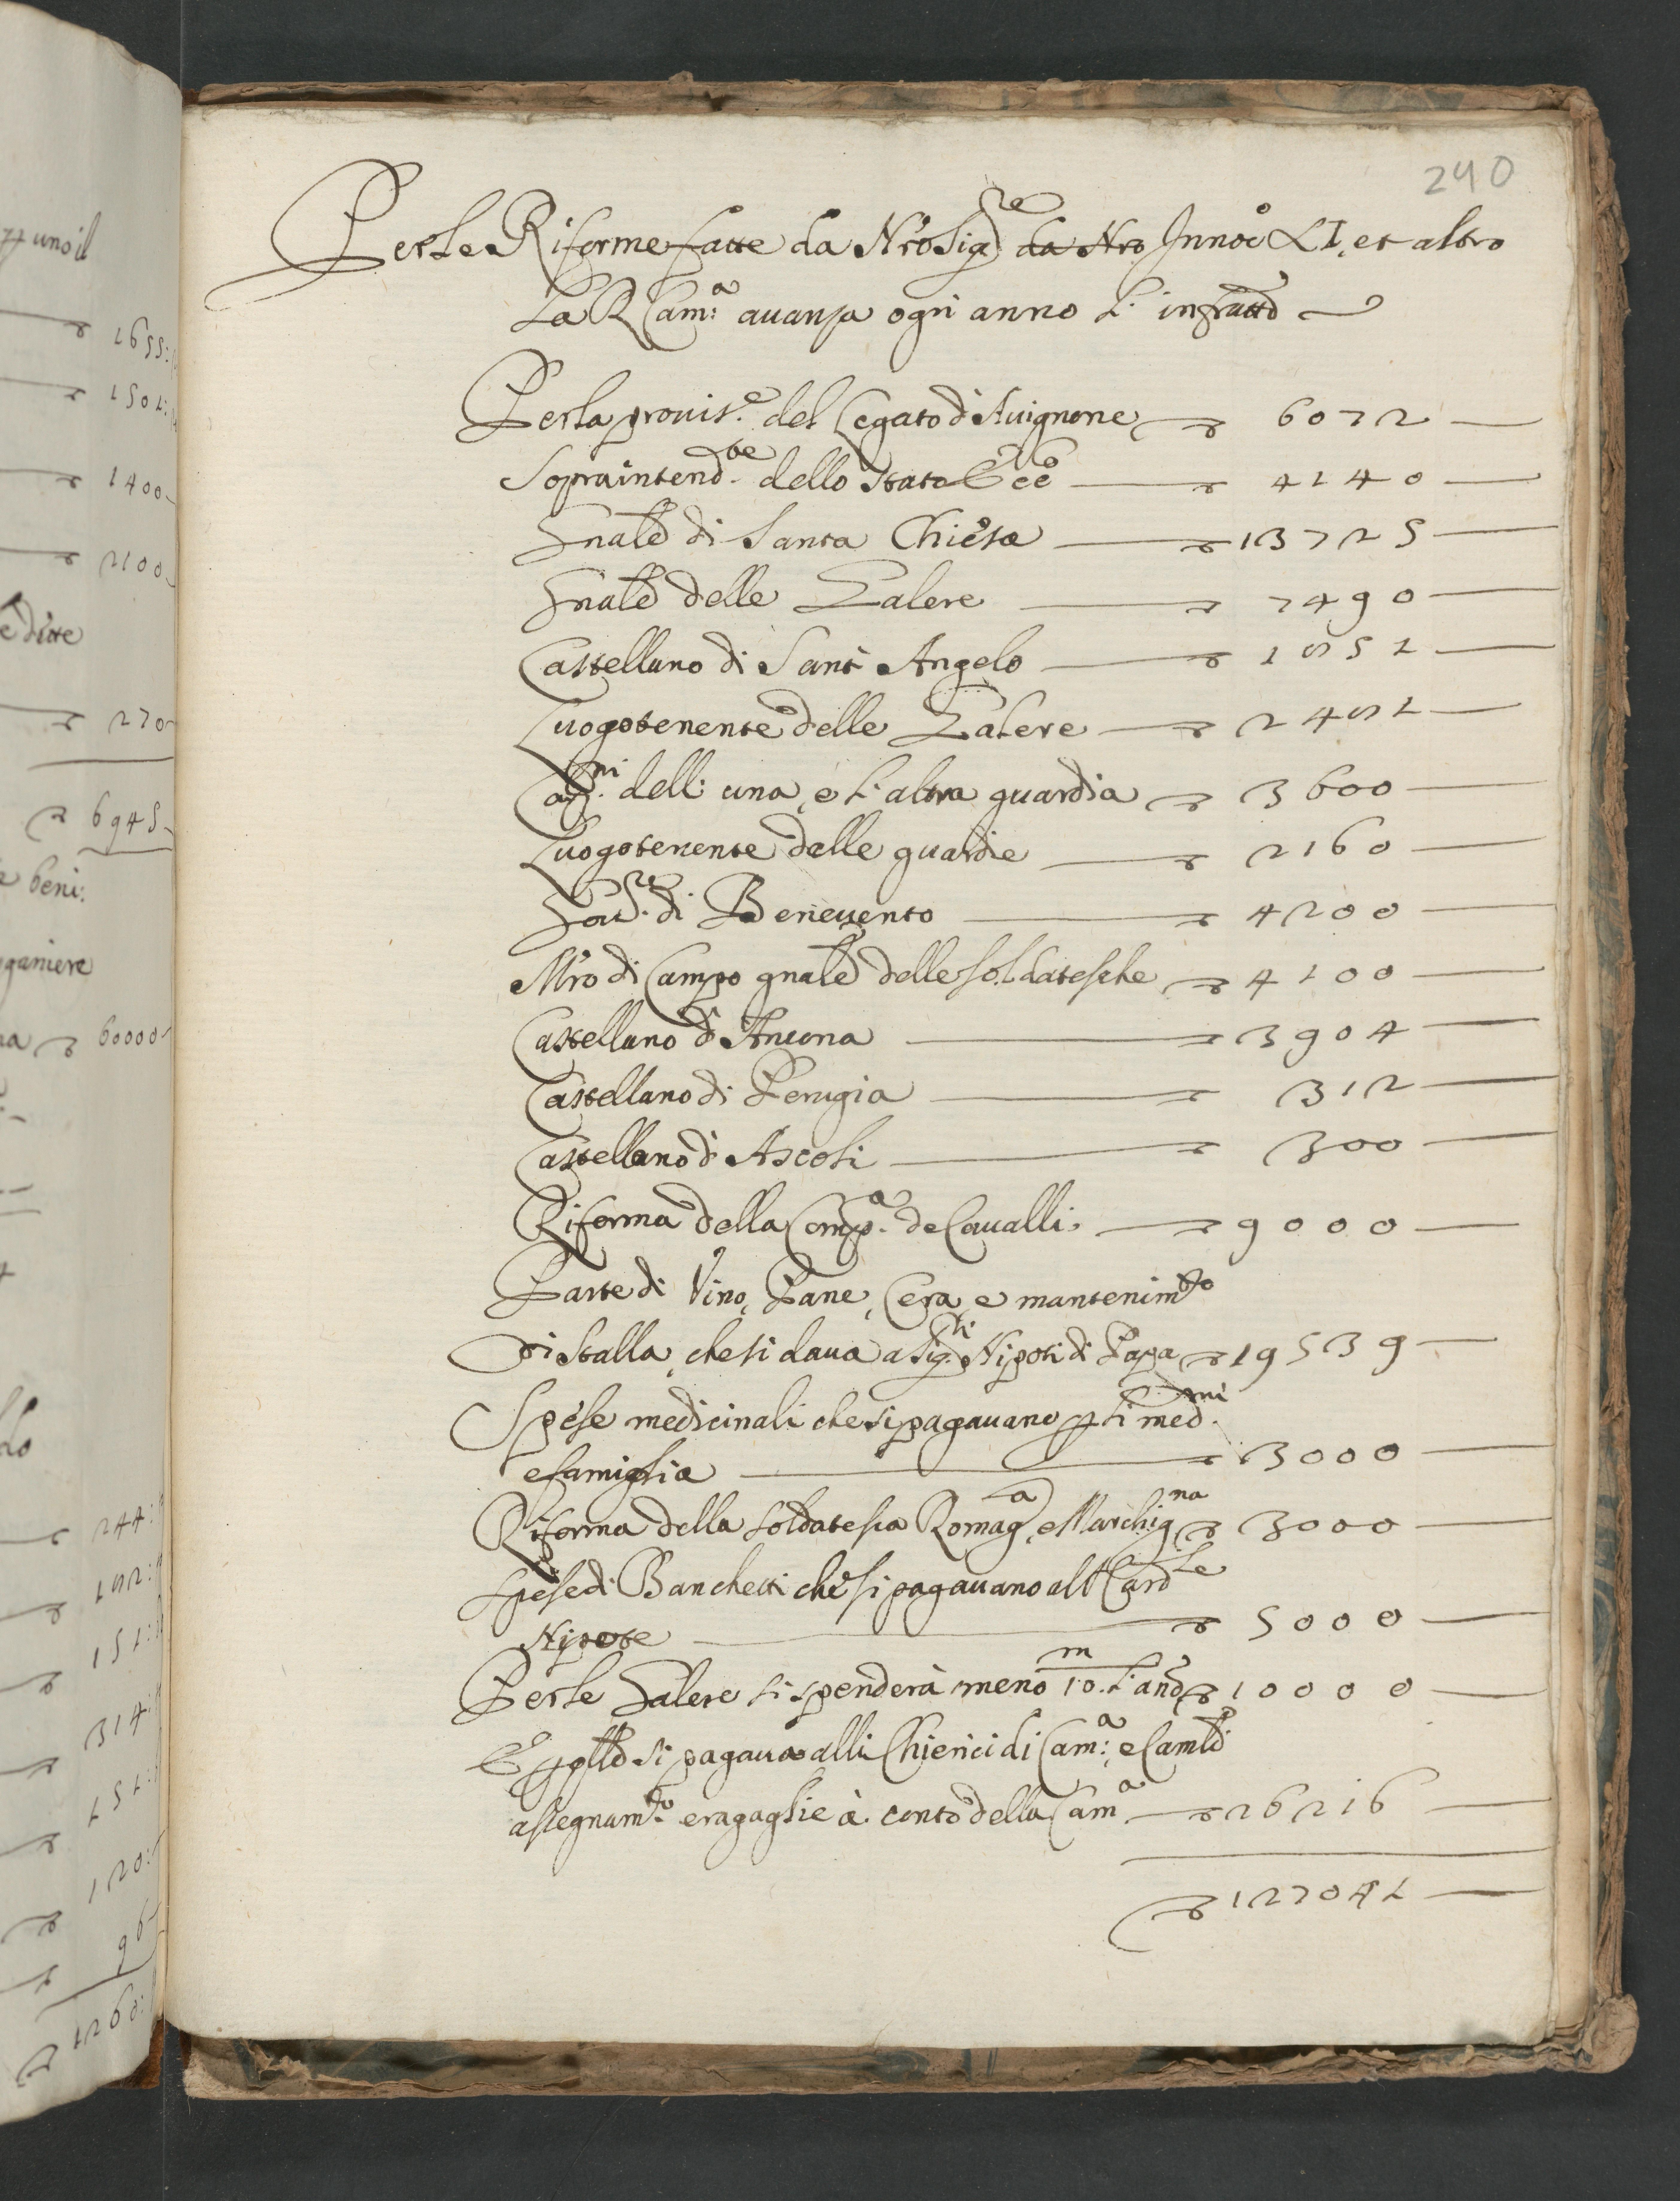 240
Per le Riforme fatte da Nrô Sigre da Nro Innoc̊ XI, et altro
La R Cam:a auanza ogni anno l' infratto
Per la prouis.e del Legato d'Auignone 6072
Sopraintend.te dello Stato Ecco 4140
Gnale di Santa Chiesa 13725
Gnale delle Galere 7490
Castellano di Sant Angelo
Luogotenente delle Galere
Cap.ni dell' una, e l' altra guardia 3600
Luogotenente delle guardie 2160
Gou.re di Beneuento 4200
Mro di Campo gnale delle soldatesche 4100
Castellano d'Ancona 3904
Castellano di Perugia 312
Castellano d'Ascoli 300
Riforma della Comp.a de Caualli 9000
Parte di Vino, Pane, Cera, e mantenimto
di stalla, che si daua a Sig.ri Nipoti di Papa 19539
Spese medicinali che si pagauano p li med.mi
e famiglia 3000
Riforma della soldatesca Romaga, e Marchigna 3000
Spese di Banchetti che si pagauano all Cardle
Nipote 5000
Per le Galere si spenderà meno 10.m l'anno 10000
E p qllo si pagaua alli Chierici di Cam:a e Camlo
assegnam.to e ragaglie à conto della Cama 26216
127041
p uno il
1655:
1501:
1400
2100
e ditte
270
6945
beni:
ganiere
60000
244:
151:
314:
151:
120:
96
1260: